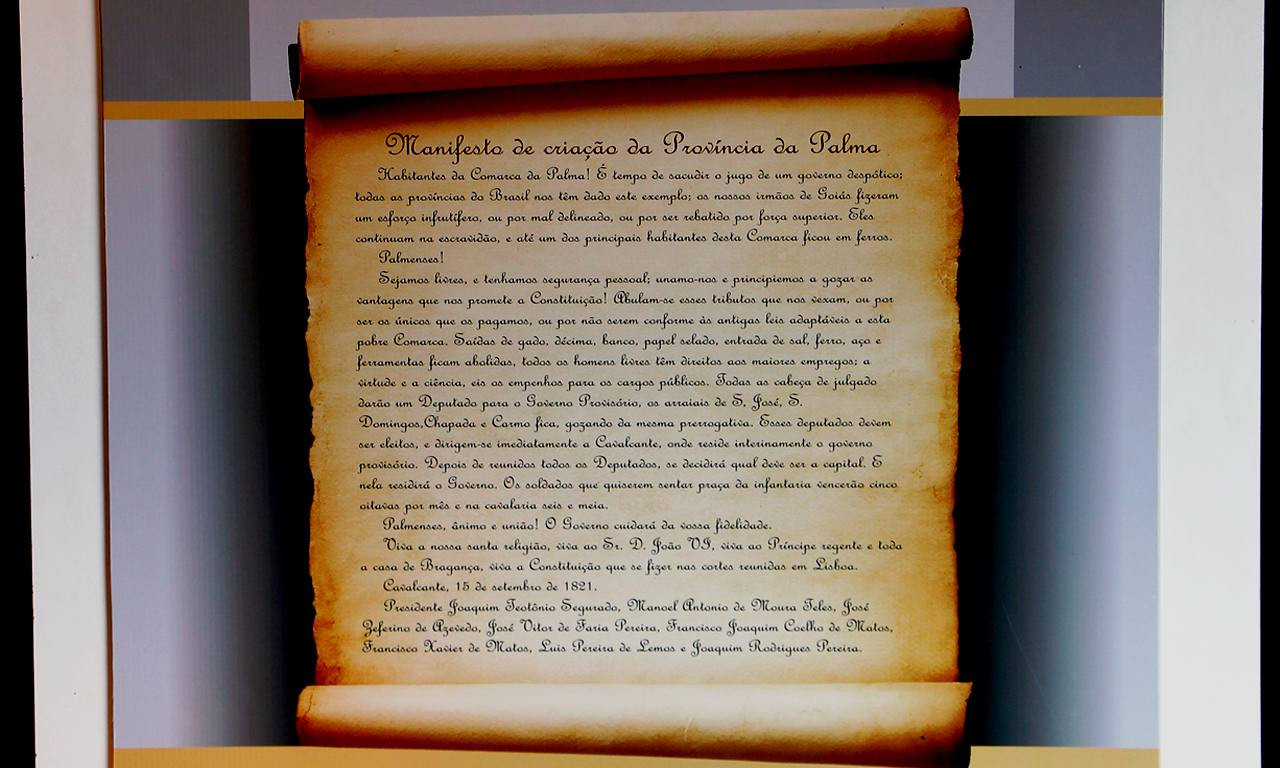 Manifesto de criação da Província da Palma
Habitantes da Comarca da Palma! É tempo de sacudir o jugo de um governo despótico;
todas as províncias do Brasil nos têm dado este exemplo; os nossos irmãos de Goiás fizeram
um esforço infrutífero, ou por mal delineado, ou por ser rebatido por força superior. Eles
continuam na escravidão, e até um dos principais habitantes desta Comarca ficou em ferros.
Palmenses!
Sejamos livres, e tenhamos segurança pessoal; unamo-nos e principiemos a gozar as
vantagens que nos promete a Constituição! Abulam-se esses tributos que nos vexam, ou por
ser os únicos que os pagamos, ou por não serem conforme às antigas leis adaptáveis a esta
pobre Comarca. Saídas de gado, décima, banco, papel selado, entrada de sal, ferro, aço e
ferramentas ficam abolidas, todos os homens livres têm direitos aos maiores empregos; a
virtude e a ciência, eis os empenhos para os cargos públicos. Todas as cabeça de julgado
darão um Deputado para o Governo Provisório, os arraiais de S, José, S.
Domingos,Chapada e Carmo fica, gozando da mesma prerrogativa. Esses deputados devem
ser eleitos, e dirigem-se imediatamente a Cavalcante, onde reside interinamente o governo
provisório. Depois de reunidos todos os Deputados, se decidirá qual deve ser a capital. E
nela residirá o Governo. Os soldados que quiserem sentar praça da infantaria vencerão cinco
oitavas por mês e na cavalaria seis e meia.
Palmenses, ânimo e união! O Governo cuidará da vossa fidelidade.
Viva a nossa santa religião, viva ao Sr. D. João VI, viva ao Príncipe regente e toda
a casa de Bragança, viva a Constituição que se fizer nas cortes reunidas em Lisboa.
Cavalcante, 15 de setembro de 1821.
Presidente Joaquim Teotônio Segurado, Manoel Antonio de Moura Teles, José
Zeferino de Azevedo, José Vitor de Faria Pereira, Francisco Joaquim Coelho de Matos,
Francisco Xavier de Matos, Luis Pereira de Lemos e Joaquim Rodrigues Pereira.